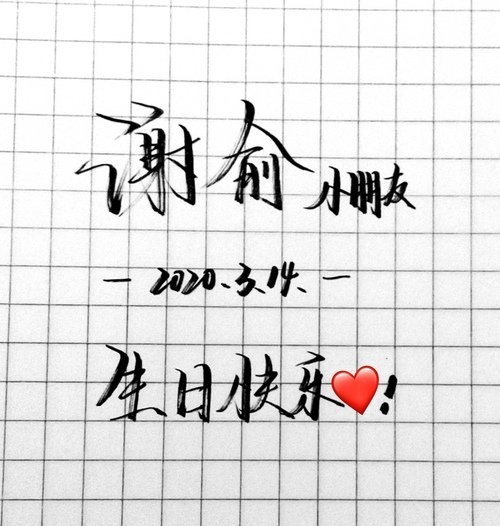 谢俞小朋友
— 2020.3.14. —
生日快乐❤️!